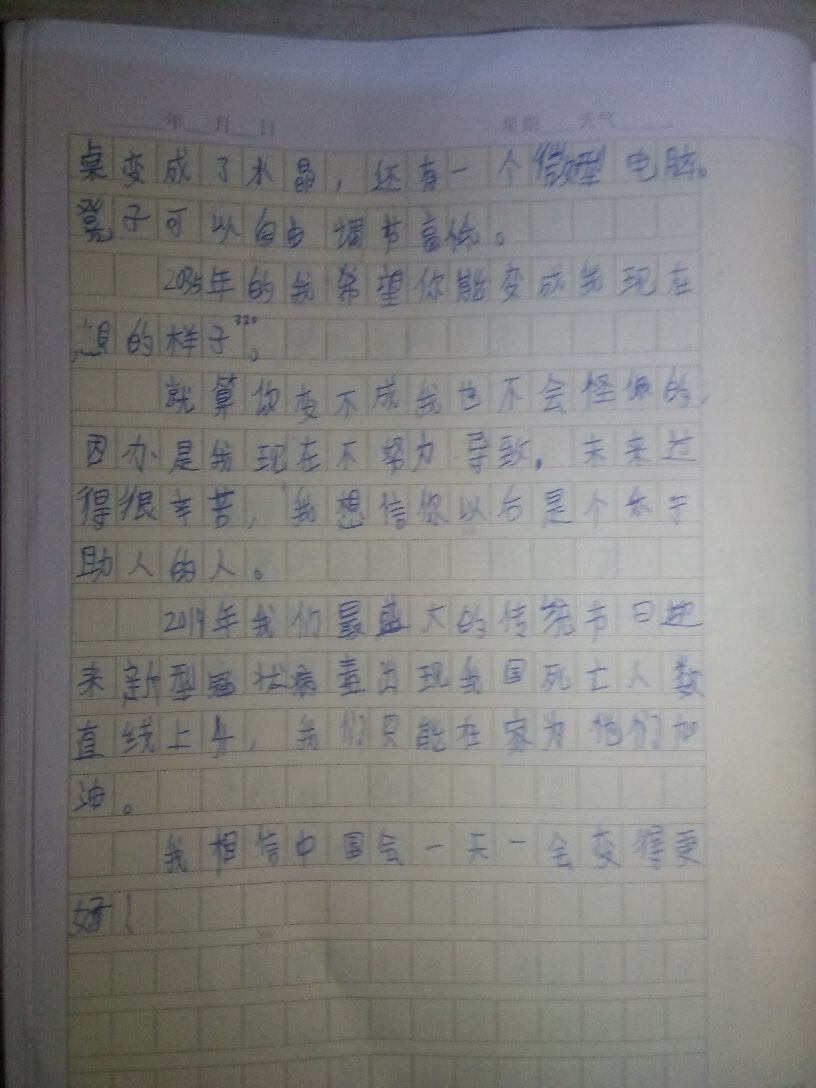 年 月 日 星期 天气
桌变成了水晶，还有一个微型电脑。
凳子可以自由调节高低。
2035年的我希望你能变成我现在
想的样子。320
就算你变不成我也不会怪你的，
因为是我现在不努力导致，未来过
得很辛苦，我想信你以后是个乐于
助人的人。
2019年我们最盛大的传统节日迎
来新型冠状病毒出现我国死亡人数
直线上升，我们只能在家为他们加
油。
我相信中国会一天一会变得更
好！